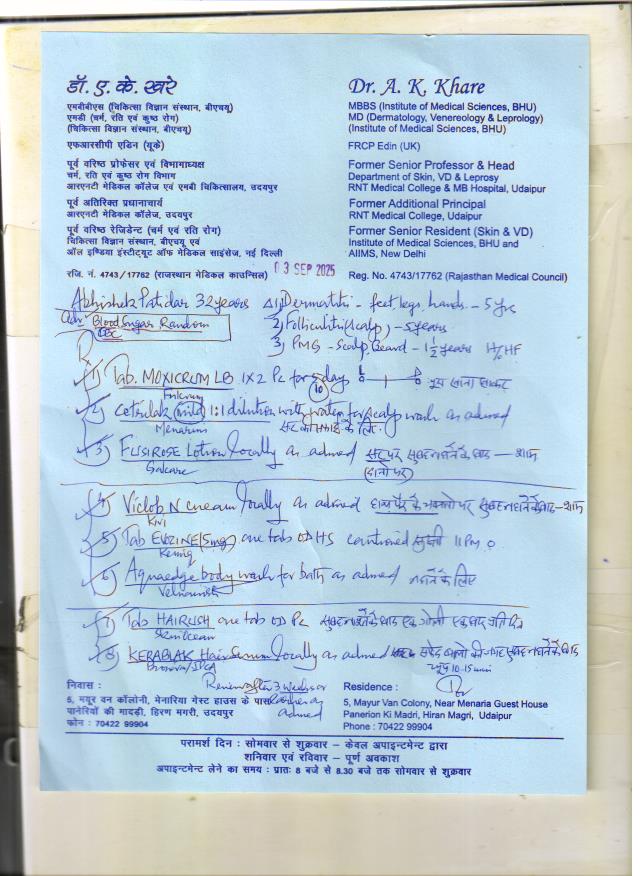 डॉ. ए. के. खरे
एमबीबीएस (चिकित्सा विज्ञान संस्थान, बीएचयू)
एमडी (चर्म, रति एवं कुष्ठ रोग)
(चिकित्सा विज्ञान संस्थान, बीएचयू)
एफआरसीपी एडिन (यूके)
पूर्व वरिष्ठ प्रोफेसर एवं विभागाध्यक्ष
चर्म, रति एवं कुष्ठ रोग विभाग
आरएनटी मेडिकल कॉलेज एवं एमबी चिकित्सालय, उदयपुर
पूर्व अतिरिक्त प्रधानाचार्य
आरएनटी मेडिकल कॉलेज, उदयपुर
पूर्व वरिष्ठ रेजिडेन्ट (चर्म एवं रति रोग)
चिकित्सा विज्ञान संस्थान, बीएचयू एवं
ऑल इण्डिया इंस्टीट्यूट ऑफ मेडिकल साइंसेज, नई दिल्ली
रजि. नं. 4743/17762 (राजस्थान मेडिकल काउन्सिल)
Dr. A. K. Khare
MBBS (Institute of Medical Sciences, BHU)
MD (Dermatology, Venereology & Leprology)
(Institute of Medical Sciences, BHU)
FRCP Edin (UK)
Former Senior Professor & Head
Department of Skin, VD & Leprosy
RNT Medical College & MB Hospital, Udaipur
Former Additional Principal
RNT Medical College, Udaipur
Former Senior Resident (Skin & VD)
Institute of Medical Sciences, BHU and
AIIMS, New Delhi
Reg. No. 4743/17762 (Rajasthan Medical Council)
03 SEP 2025
Abhishek Patidar 32 years
Adv Blood Sugar Random
CBC
1) Dermatitis - feet legs, hands - 5 yrs
2) Folliculitis (Scalp) - 5 years
3) PMG - Scalp, Beard - 1 1/2 years H/o HF
Rx
1) Tab. MOXICRUM LB 1X2 Pc for 5 day
10
Fulcrum
2) Cetrilak (mild) 1:1 dilution with water for scalp wash as advised
Menarini
3) FUSIROSE Lotion locally as advised
Galcare
4) Viclop N cream locally as advised
Kivi
5) Tab EBZINE (5mg) one tab OD HS
6) Aquaedge body wash for bath as advised नहाने के लिए
7) Tab HAIRUSH one tab OD Pc
8) KERABLAK Hair Serum locally as advised
10-15 min
Renew after 3 weeks or
as advised
निवास :
5, मयूर वन कॉलोनी, मेनारिया गेस्ट हाउस के पास
पानेरियों की मादड़ी, हिरण मगरी, उदयपुर
फोन : 70422 99904
Residence :
5, Mayur Van Colony, Near Menaria Guest House
Panerion Ki Madri, Hiran Magri, Udaipur
Phone : 70422 99904
परामर्श दिन : सोमवार से शुक्रवार - केवल अपाइन्टमेन्ट द्वारा
शनिवार एवं रविवार - पूर्ण अवकाश
अपाइन्टमेन्ट लेने का समय : प्रातः 8 बजे से 8.30 बजे तक सोमवार से शुक्रवार